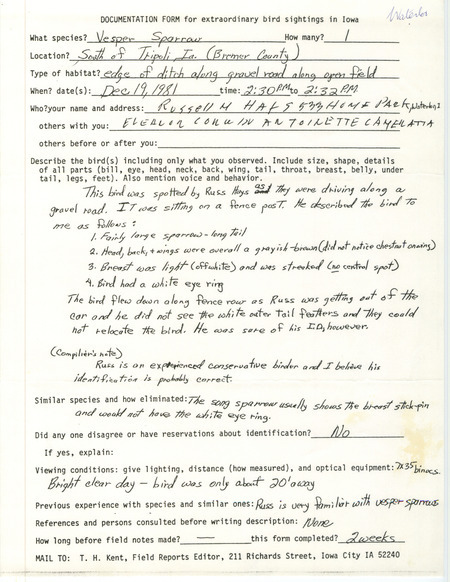 Waterloo
DOCUMENTATION FORM for extraordinary bird sightings in Iowa
What species? Vesper Sparrow How many? 1
Location? South of Tripoli Ia. (Bremer County)
Type of habitat? edge of ditch along gravel road along open field
When? date(s): Dec 19, 1981 time: 2:30 PM to 2:32 PM
Who? your name and address: Russell M HAYS 533 HOME PARK, Waterloo
others with you: ELEANOR CORWIN ANTOINETTE CAMERATTA
others before or after you:
Describe the bird(s) including only what you observed. Include size, shape, details
of all parts (bill, eye, head, neck, back, wing, tail, throat, breast, belly, under
tail, legs, feet). Also mention voice and behavior.
This bird was spotted by Russ Hays as they were driving along a
gravel road. IT was sitting on a fence post. He described the bird to
me as follows:
1. Fairly large sparrow - long tail
2. Head, back, + wings were overall a grayish-brown (did not notice chestnut on wing)
3. Breast was light (offwhite) and was streaked (no central spot)
4. Bird had a white eye ring
The bird flew down along fence row as Russ was getting out of the
car and he did not see the white outer tail feathers and they could
not relocate the bird. He was sure of his I.D., however.
(Compilier's note)
Russ is an experienced conservative birder and I believe his
identification is probably correct.
Similar species and how eliminated: The song sparrow usually shows the breast stick-pin
and would not have the white eye ring.
Did any one disagree or have reservations about identification? No
If yes, explain:
Viewing conditions: give lighting, distance (how measured), and optical equipment: 7X35 binocs.
Bright clear day - bird was only about 20' away
Previous experience with species and similar ones: Russ is very familiar with vesper sparrows
References and persons consulted before writing description: None
How long before field notes made? — this form completed? 2 weeks
MAIL TO: T. H. Kent, Field Reports Editor, 211 Richards Street, Iowa City IA 52240